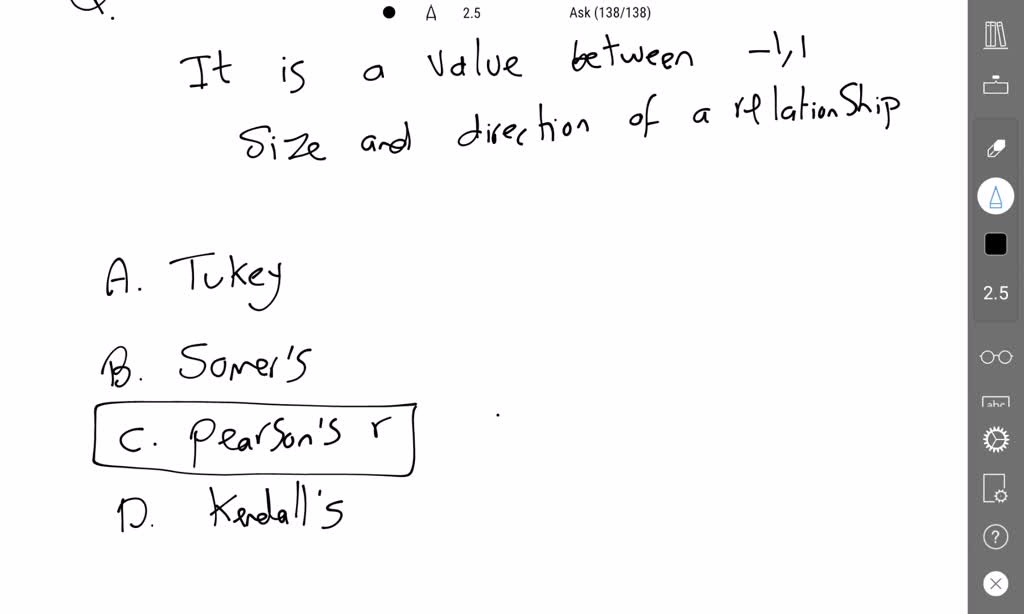 Q.
2.5 Ask (138/138)
It is a value between -1,1
Size and direction of a relationship
A. Tukey
B. Somer's
C. Pearson's r
D. Kendall's
2.5
abc
?